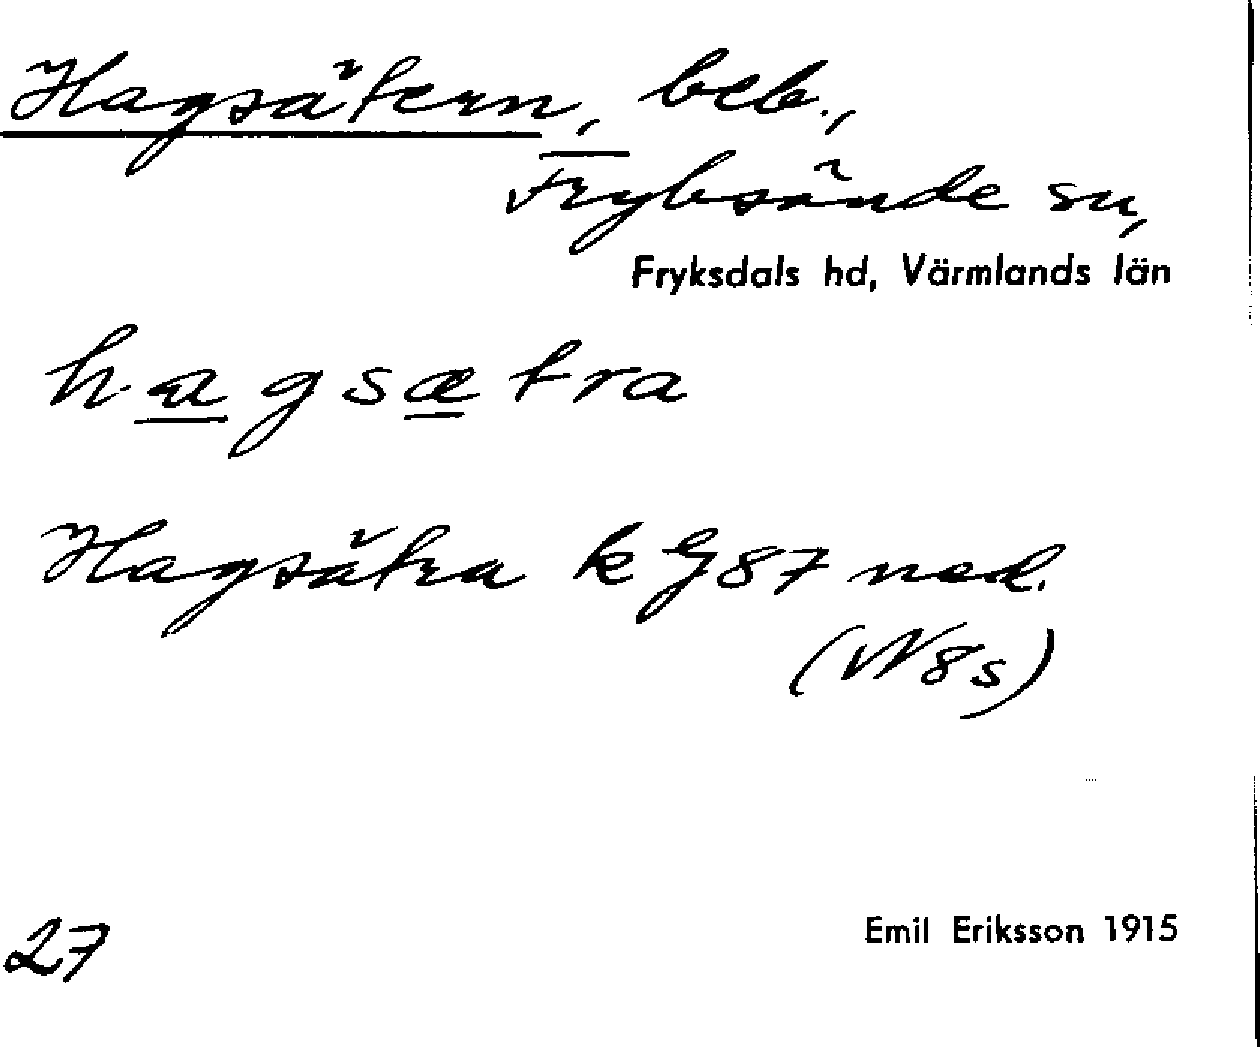 Hagsätern, beb.,
Fryksände sn,
Fryksdals hd, Värmlands län
hagsætra
Hagsätra k G87 ned.
(W8s)
27
Emil Eriksson 1915